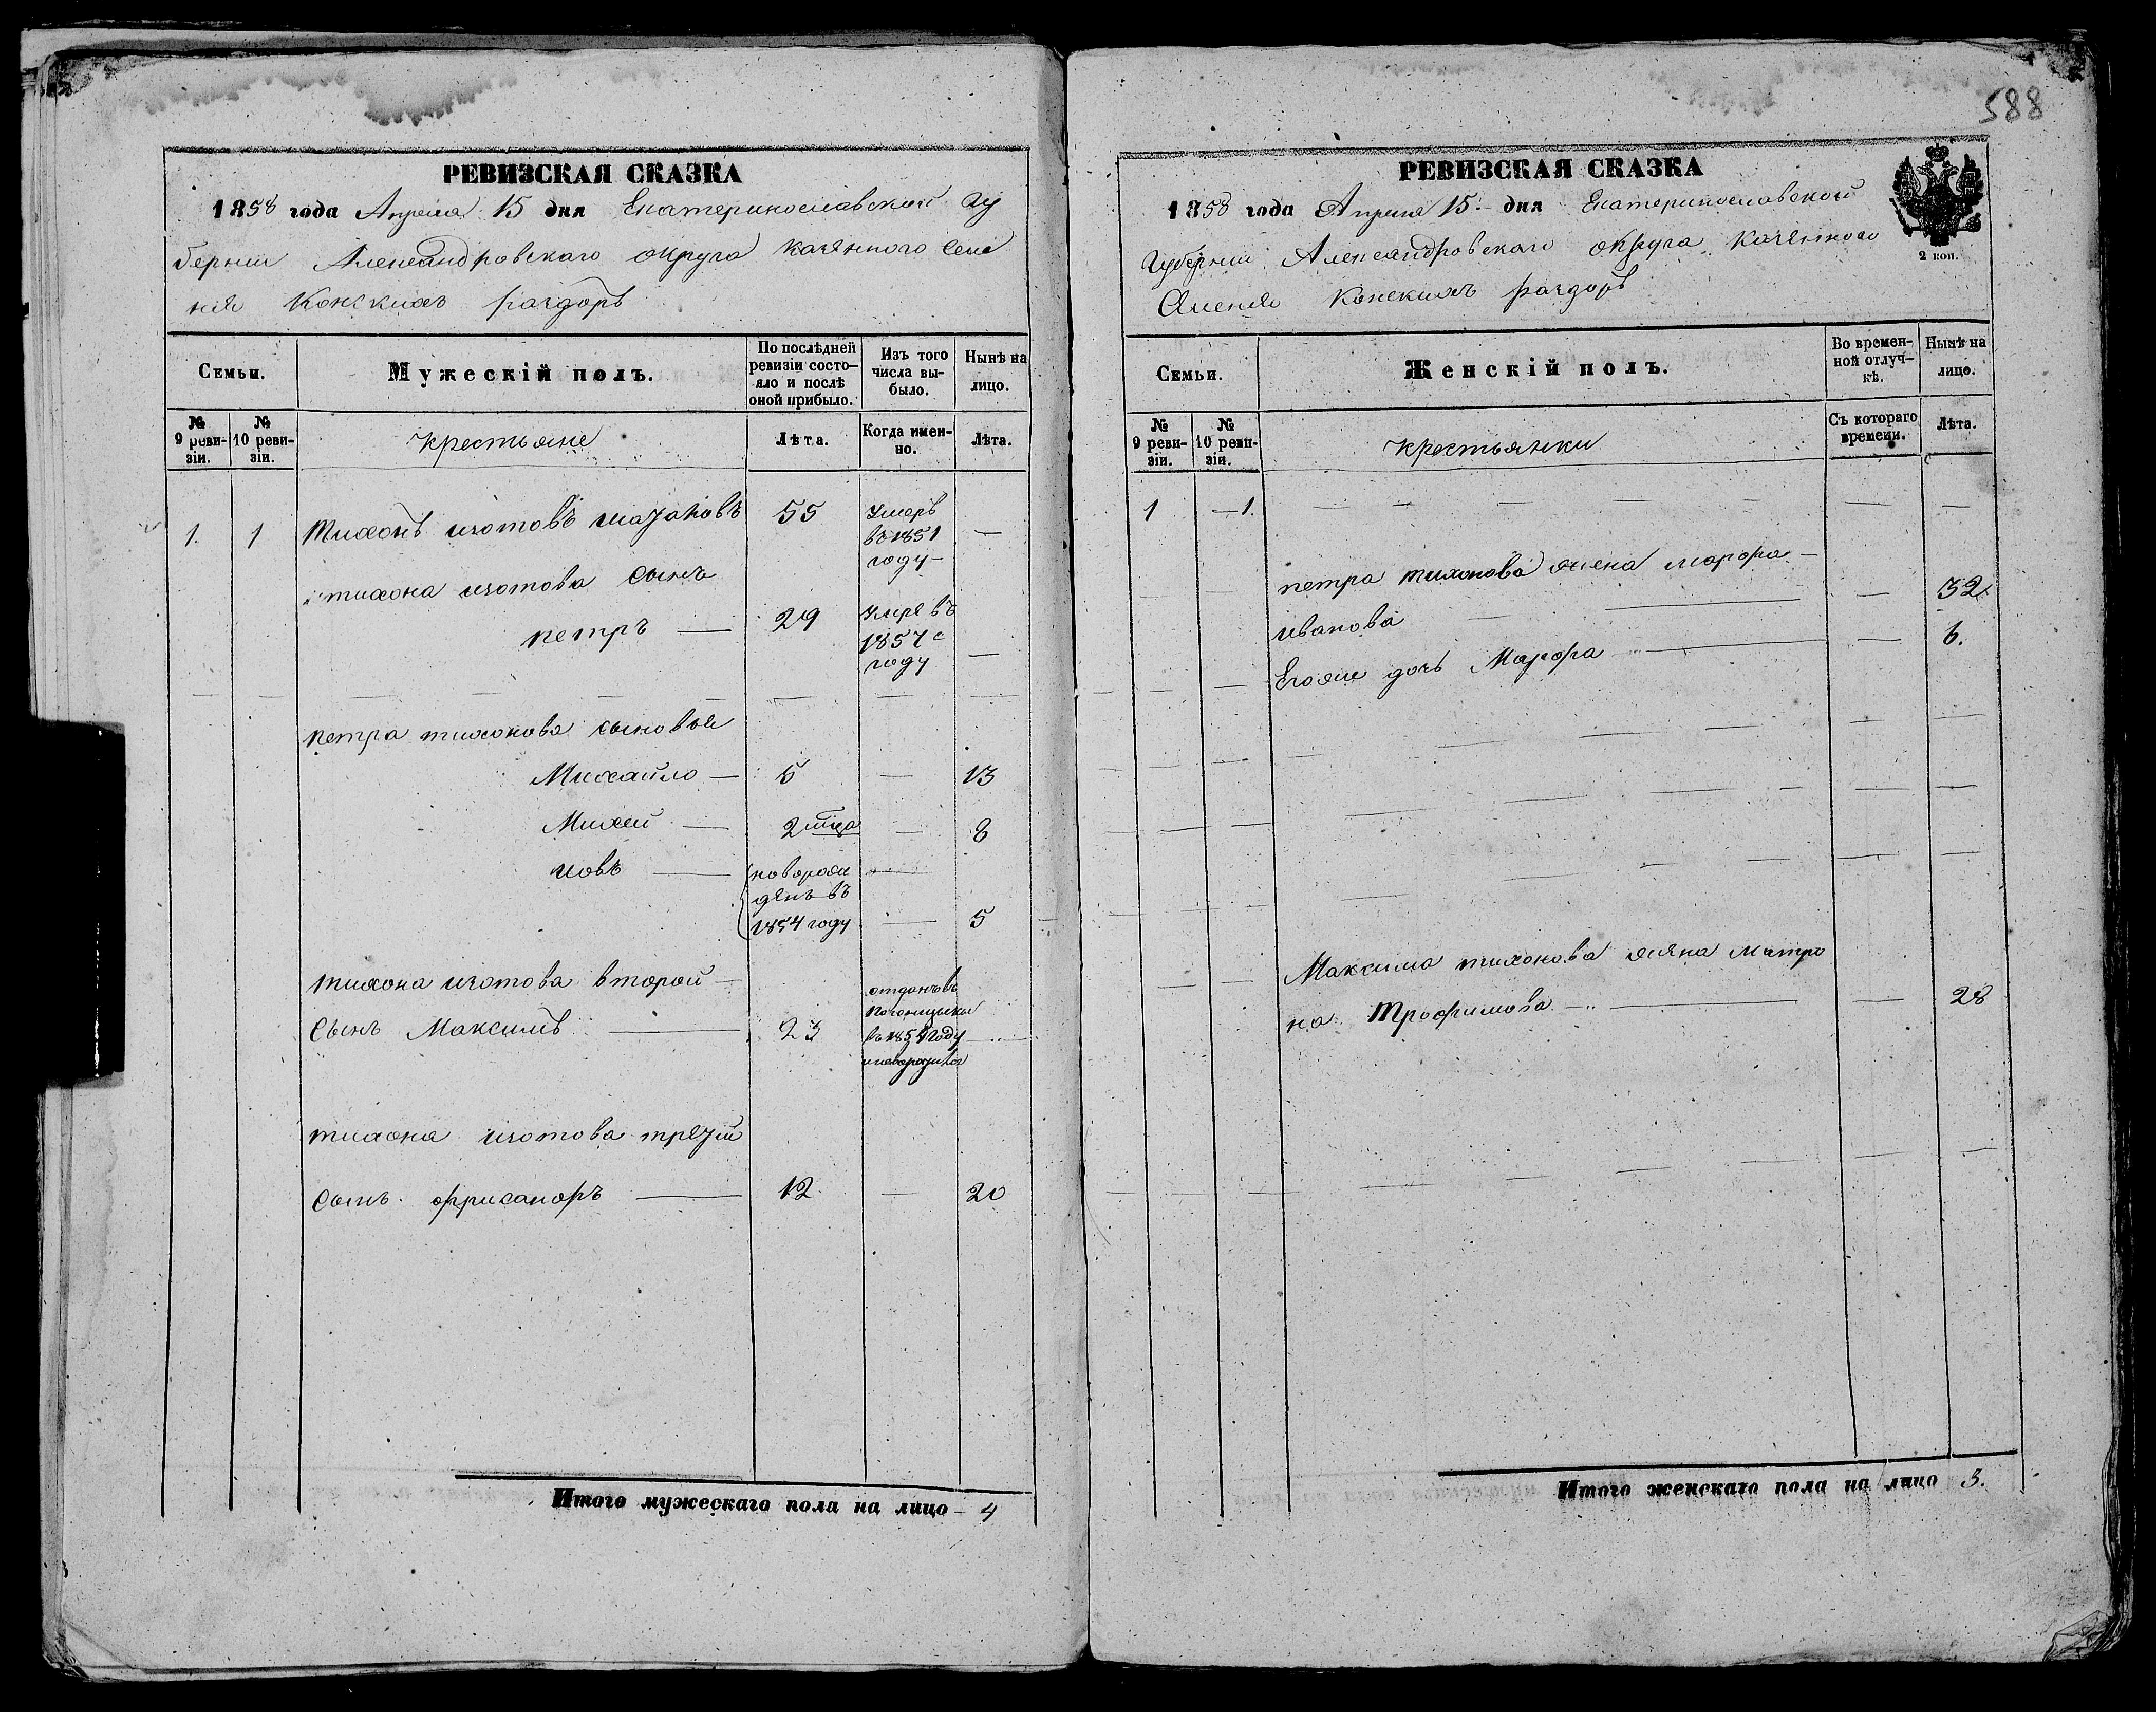 588
РЕВИЗСКАЯ СКАЗКА
1858 года Апреля 15 дня Екатеринославской Гу
берніи Александровскаго округа казенного селе
нія Конскихъ раздоръ
Семьи.
Мужескій полъ.
По послѣдней ревизіи состо-яло и послѣ оной прибыло.
Изъ того числа вы-было.
Нынѣ на лицо.
№ 9 реви-зіи.
№ 10 реви-зіи.
крестьяне
Лѣта.
Когда имен-но.
Лѣта.
1. 1 Тихонъ изотовъ 55 Умеръ въ 1851 году —
тихона изотова сынъ
петръ — 29 Умре въ 1857 году —
петра тихонова сыновья
Михайло — 5 — 13
Михей — 2 — 8
иовъ — новорож денъ въ 1854 году — 5
тихона изотова второй —
сынъ Максимъ — 23 отданъ въ въ 1854 году
тихона изотова третій
сынъ — 12 — 20
Итого мужескаго пола на лицо — 4
РЕВИЗСКАЯ СКАЗКА
2 коп.
1858 года Апреля 15 дня Екатеринославской
Губерніи Александровскаго округа казенного
селенія Конскихъ раздоръ
Семьи.
Женскій полъ.
Во времен-ной отлуч-кѣ.
Нынѣ на лицо.
№ 9 реви-зіи.
№ 10 реви-зіи.
крестьянки
Съ котораго времени.
Лѣта.
1 — 1.
петра тихонова жена марфа —
иванова — 32
Егоже дочь Марфа — 6.
Максима тихонова жена Матре
на Трофимова — 28
Итого женскаго пола на лицо 3.